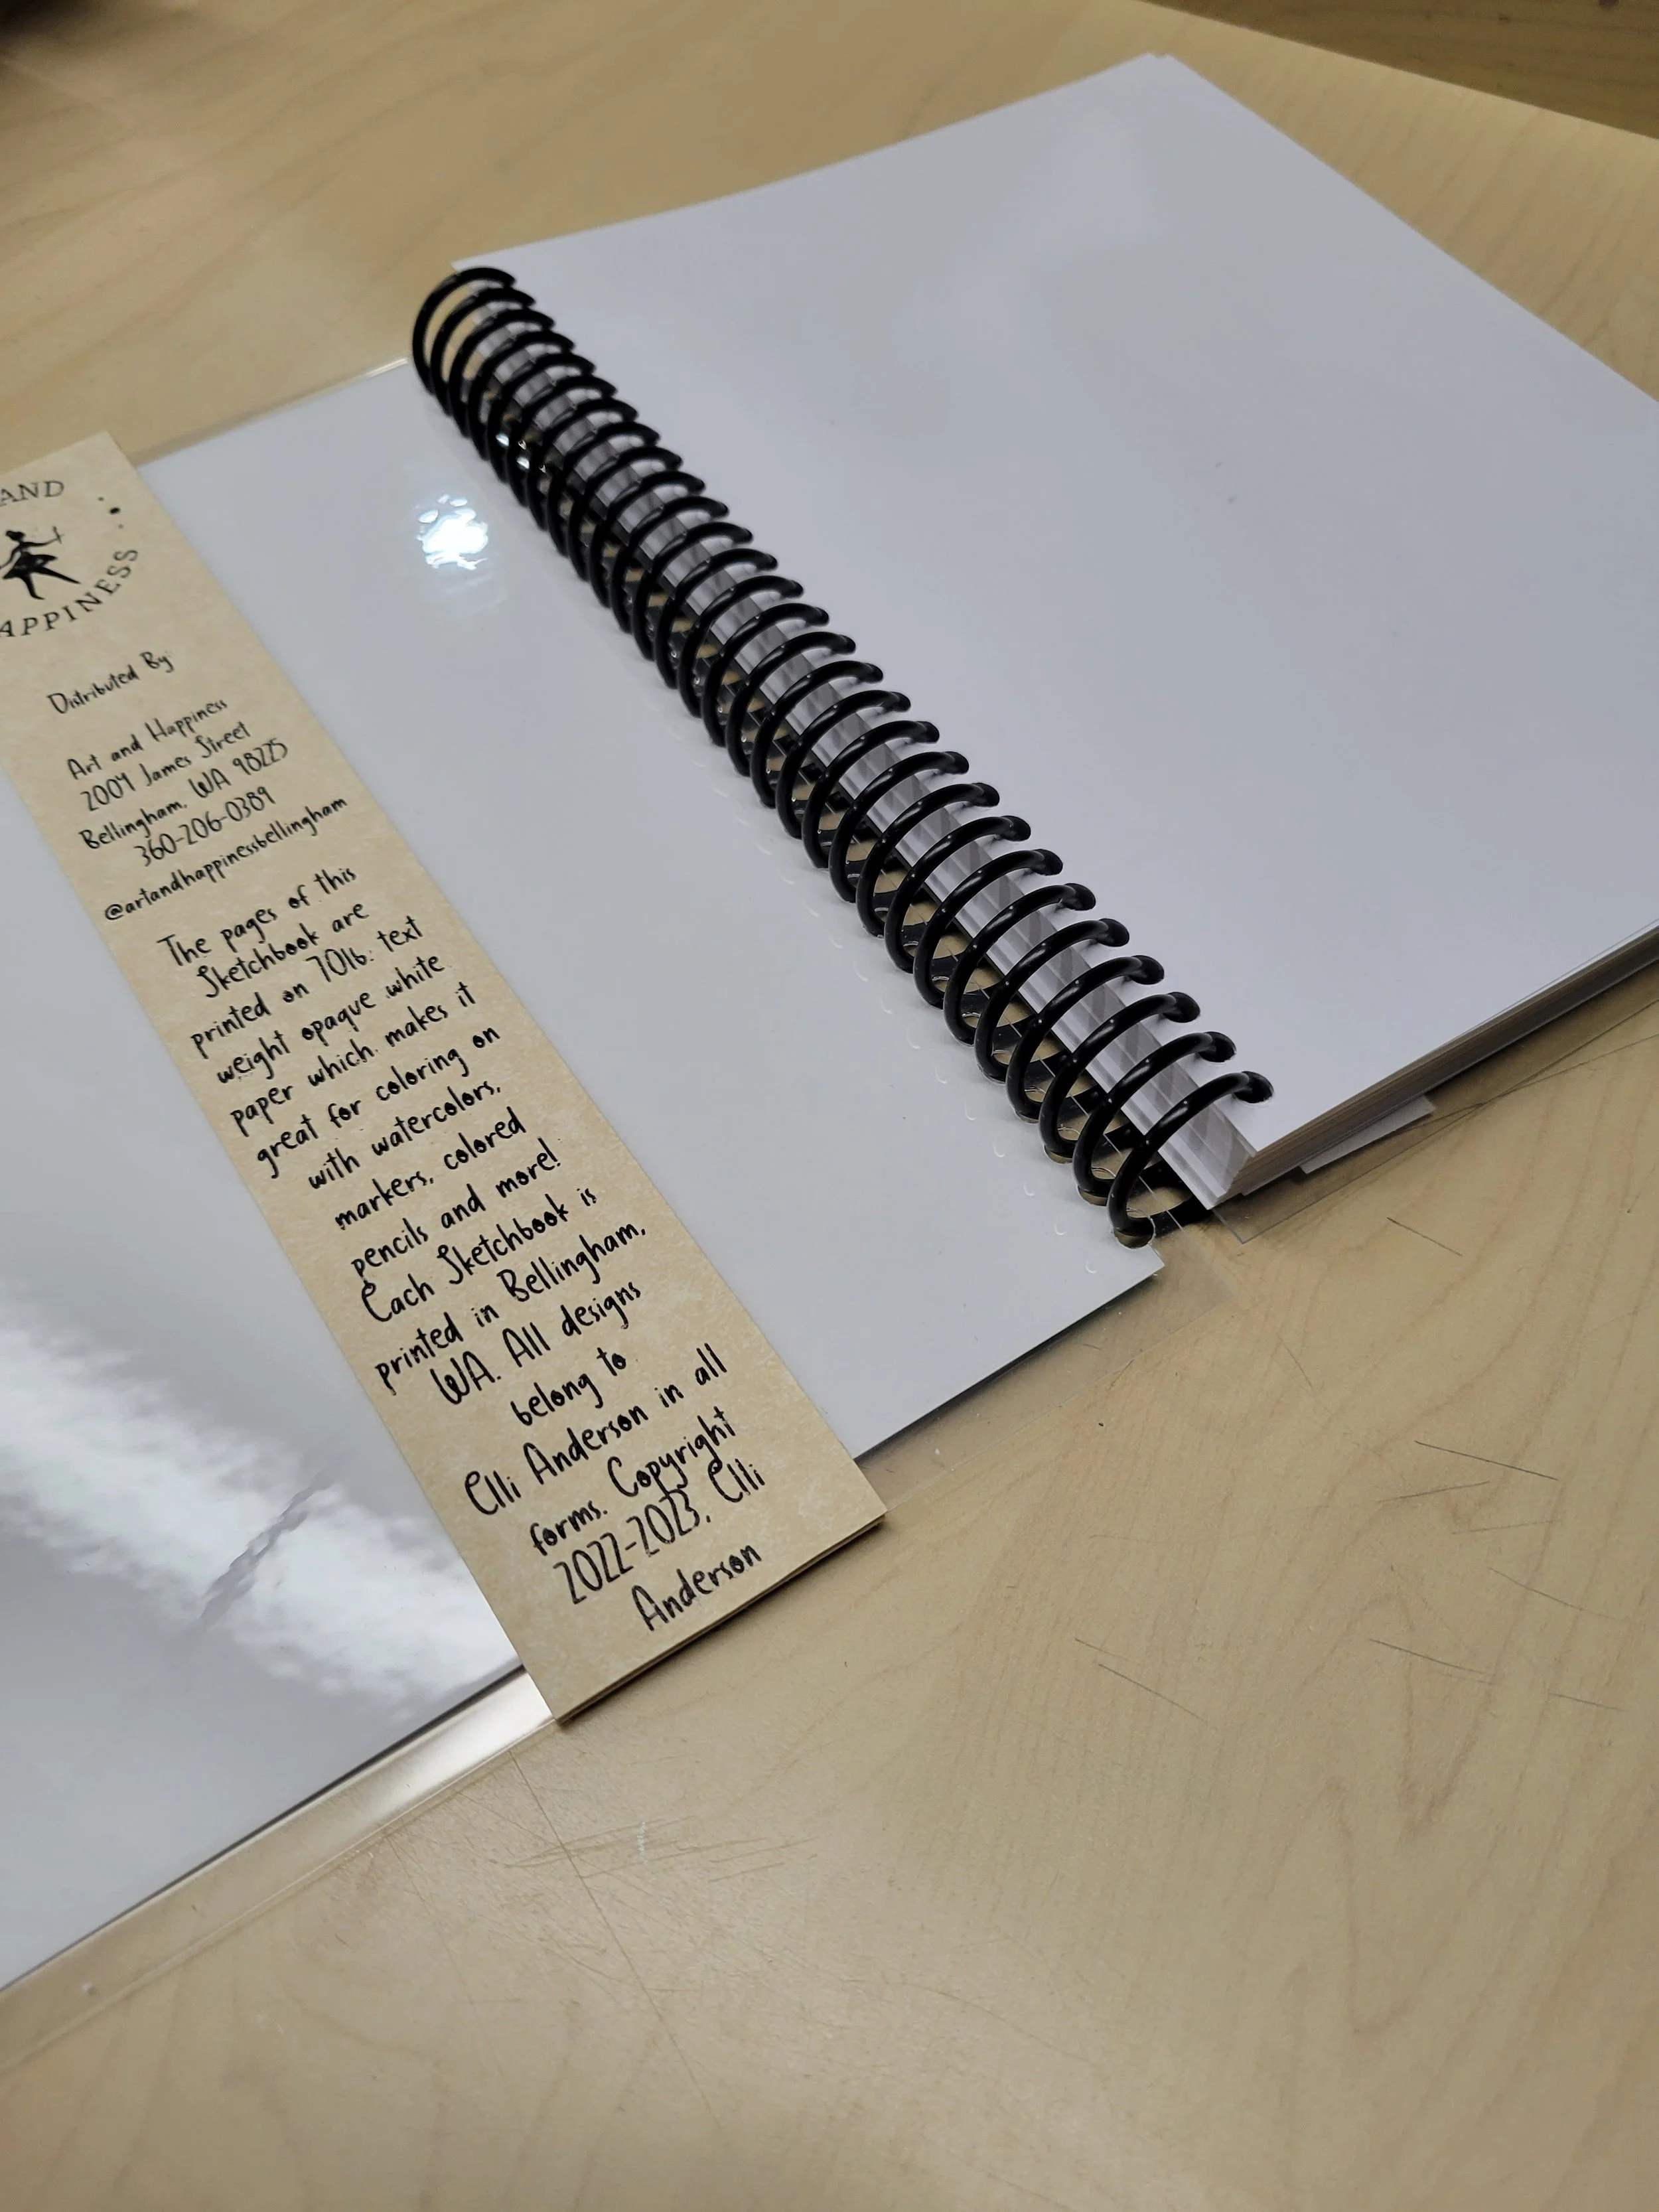 AND
APPINESS
Distributed By:
Art and Happiness
2004 James Street
Bellingham, WA 98225
360-206-0389
@artandhappinessbellingham
The pages of this
Sketchbook are
printed on 70lb. text
weight opaque white
paper which makes it
great for coloring on
with watercolors,
markers, colored
pencils and more!
Each Sketchbook is
printed in Bellingham,
WA. All designs
belong to
Elli Anderson in all
forms. Copyright
2022-2023, Elli
Anderson